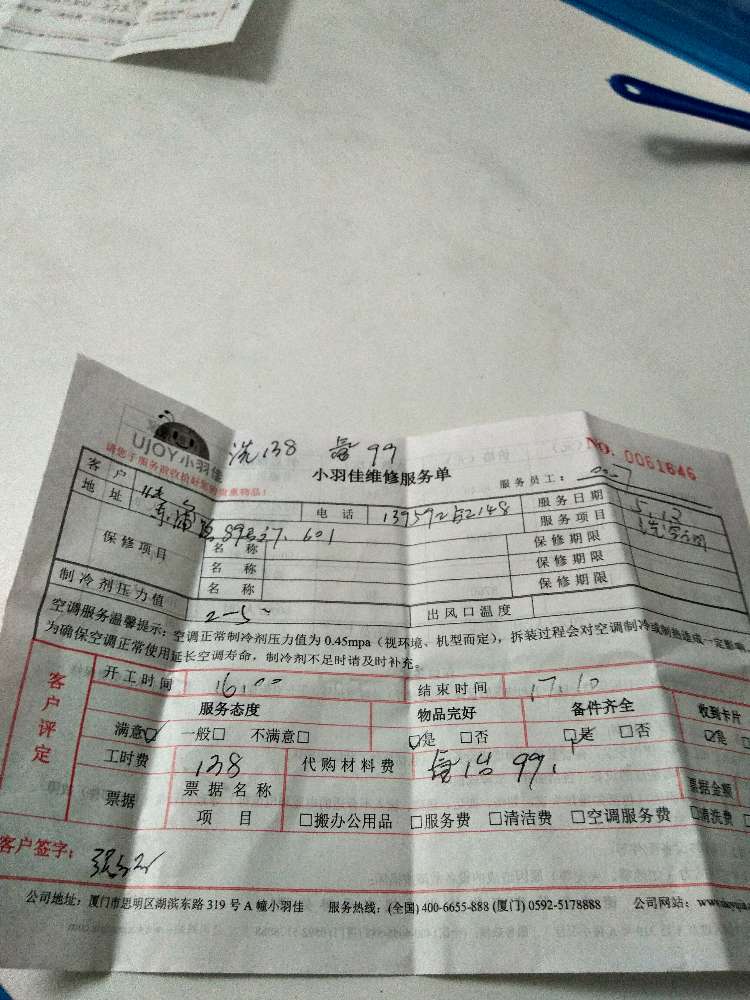 UJOY小羽佳
洗138 99
NO. 0061646
小羽佳维修服务单
服务员工：
客户
电话 服务日期 5.12
地址 89号 601
服务项目
保修项目 名称 保修期限
名称 保修期限
名称 保修期限
制冷剂压力值 出风口温度
空调服务温馨提示：空调正常制冷剂压力值为 0.45mpa（视环境、机型而定），拆装过程会对空调制冷或制热造成一定影响
为确保空调正常使用延长空调寿命，制冷剂不足时请及时补充。
客户评定
开工时间 16.00 结束时间 17.10
服务态度 物品完好 备件齐全 收到卡片
满意☑ 一般□ 不满意□ ☑是 □否 ☑是 □否 ☑是
工时费 138 代购材料费 99
票据 票据名称 票据金额
项目 □搬办公用品 □服务费 □清洁费 □空调服务费 □清洗费
客户签字：
公司地址：厦门市思明区湖滨东路 319 号 A 幢小羽佳 服务热线：(全国) 400-6655-888 (厦门) 0592-5178888 公司网站：